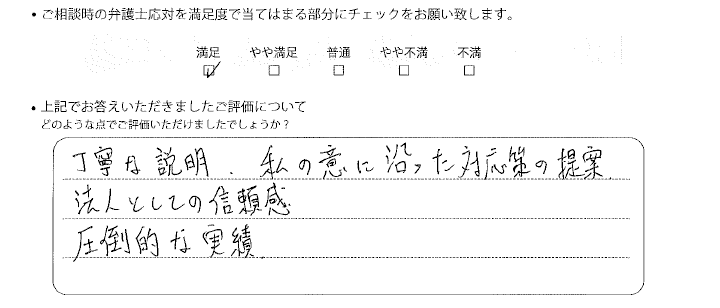 • ご相談時の弁護士応対を満足度で当てはまる部分にチェックをお願い致します。
満足 やや満足 普通 やや不満 不満
☑ □ □ □ □
• 上記でお答えいただきましたご評価について
どのような点でご評価いただけましたでしょうか？
丁寧な説明、私の意に沿った対応策の提案
法人としての信頼感
圧倒的な実績